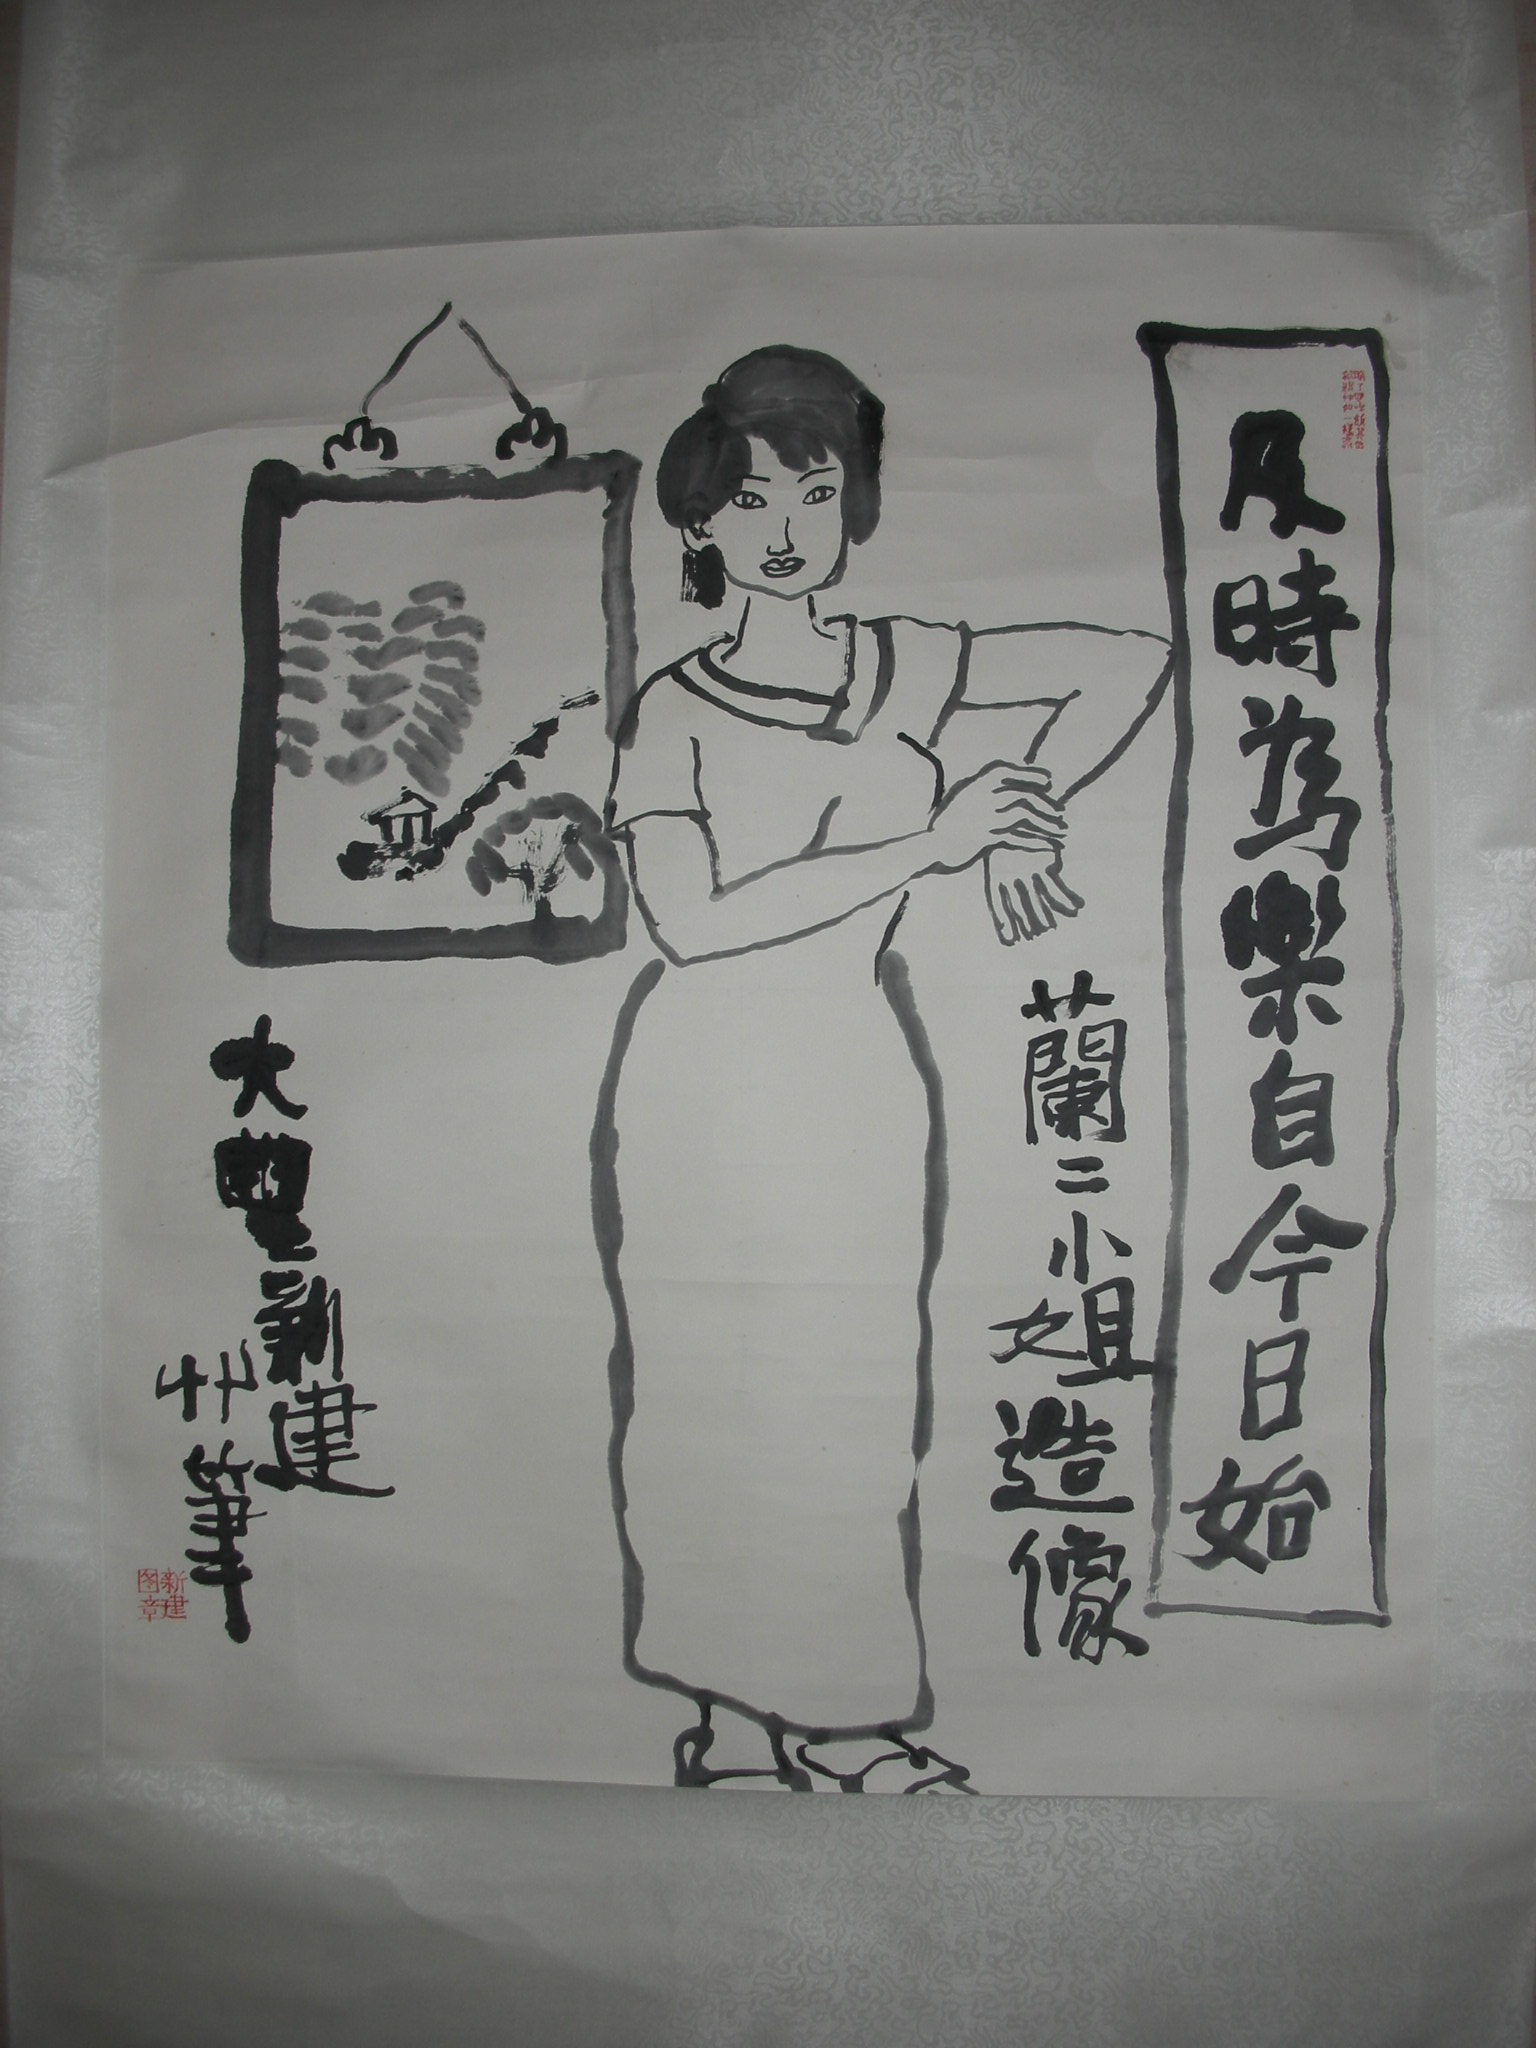 及時為樂自今日始
蘭二小姐造像
大豐新建
艸筆
新建
图章